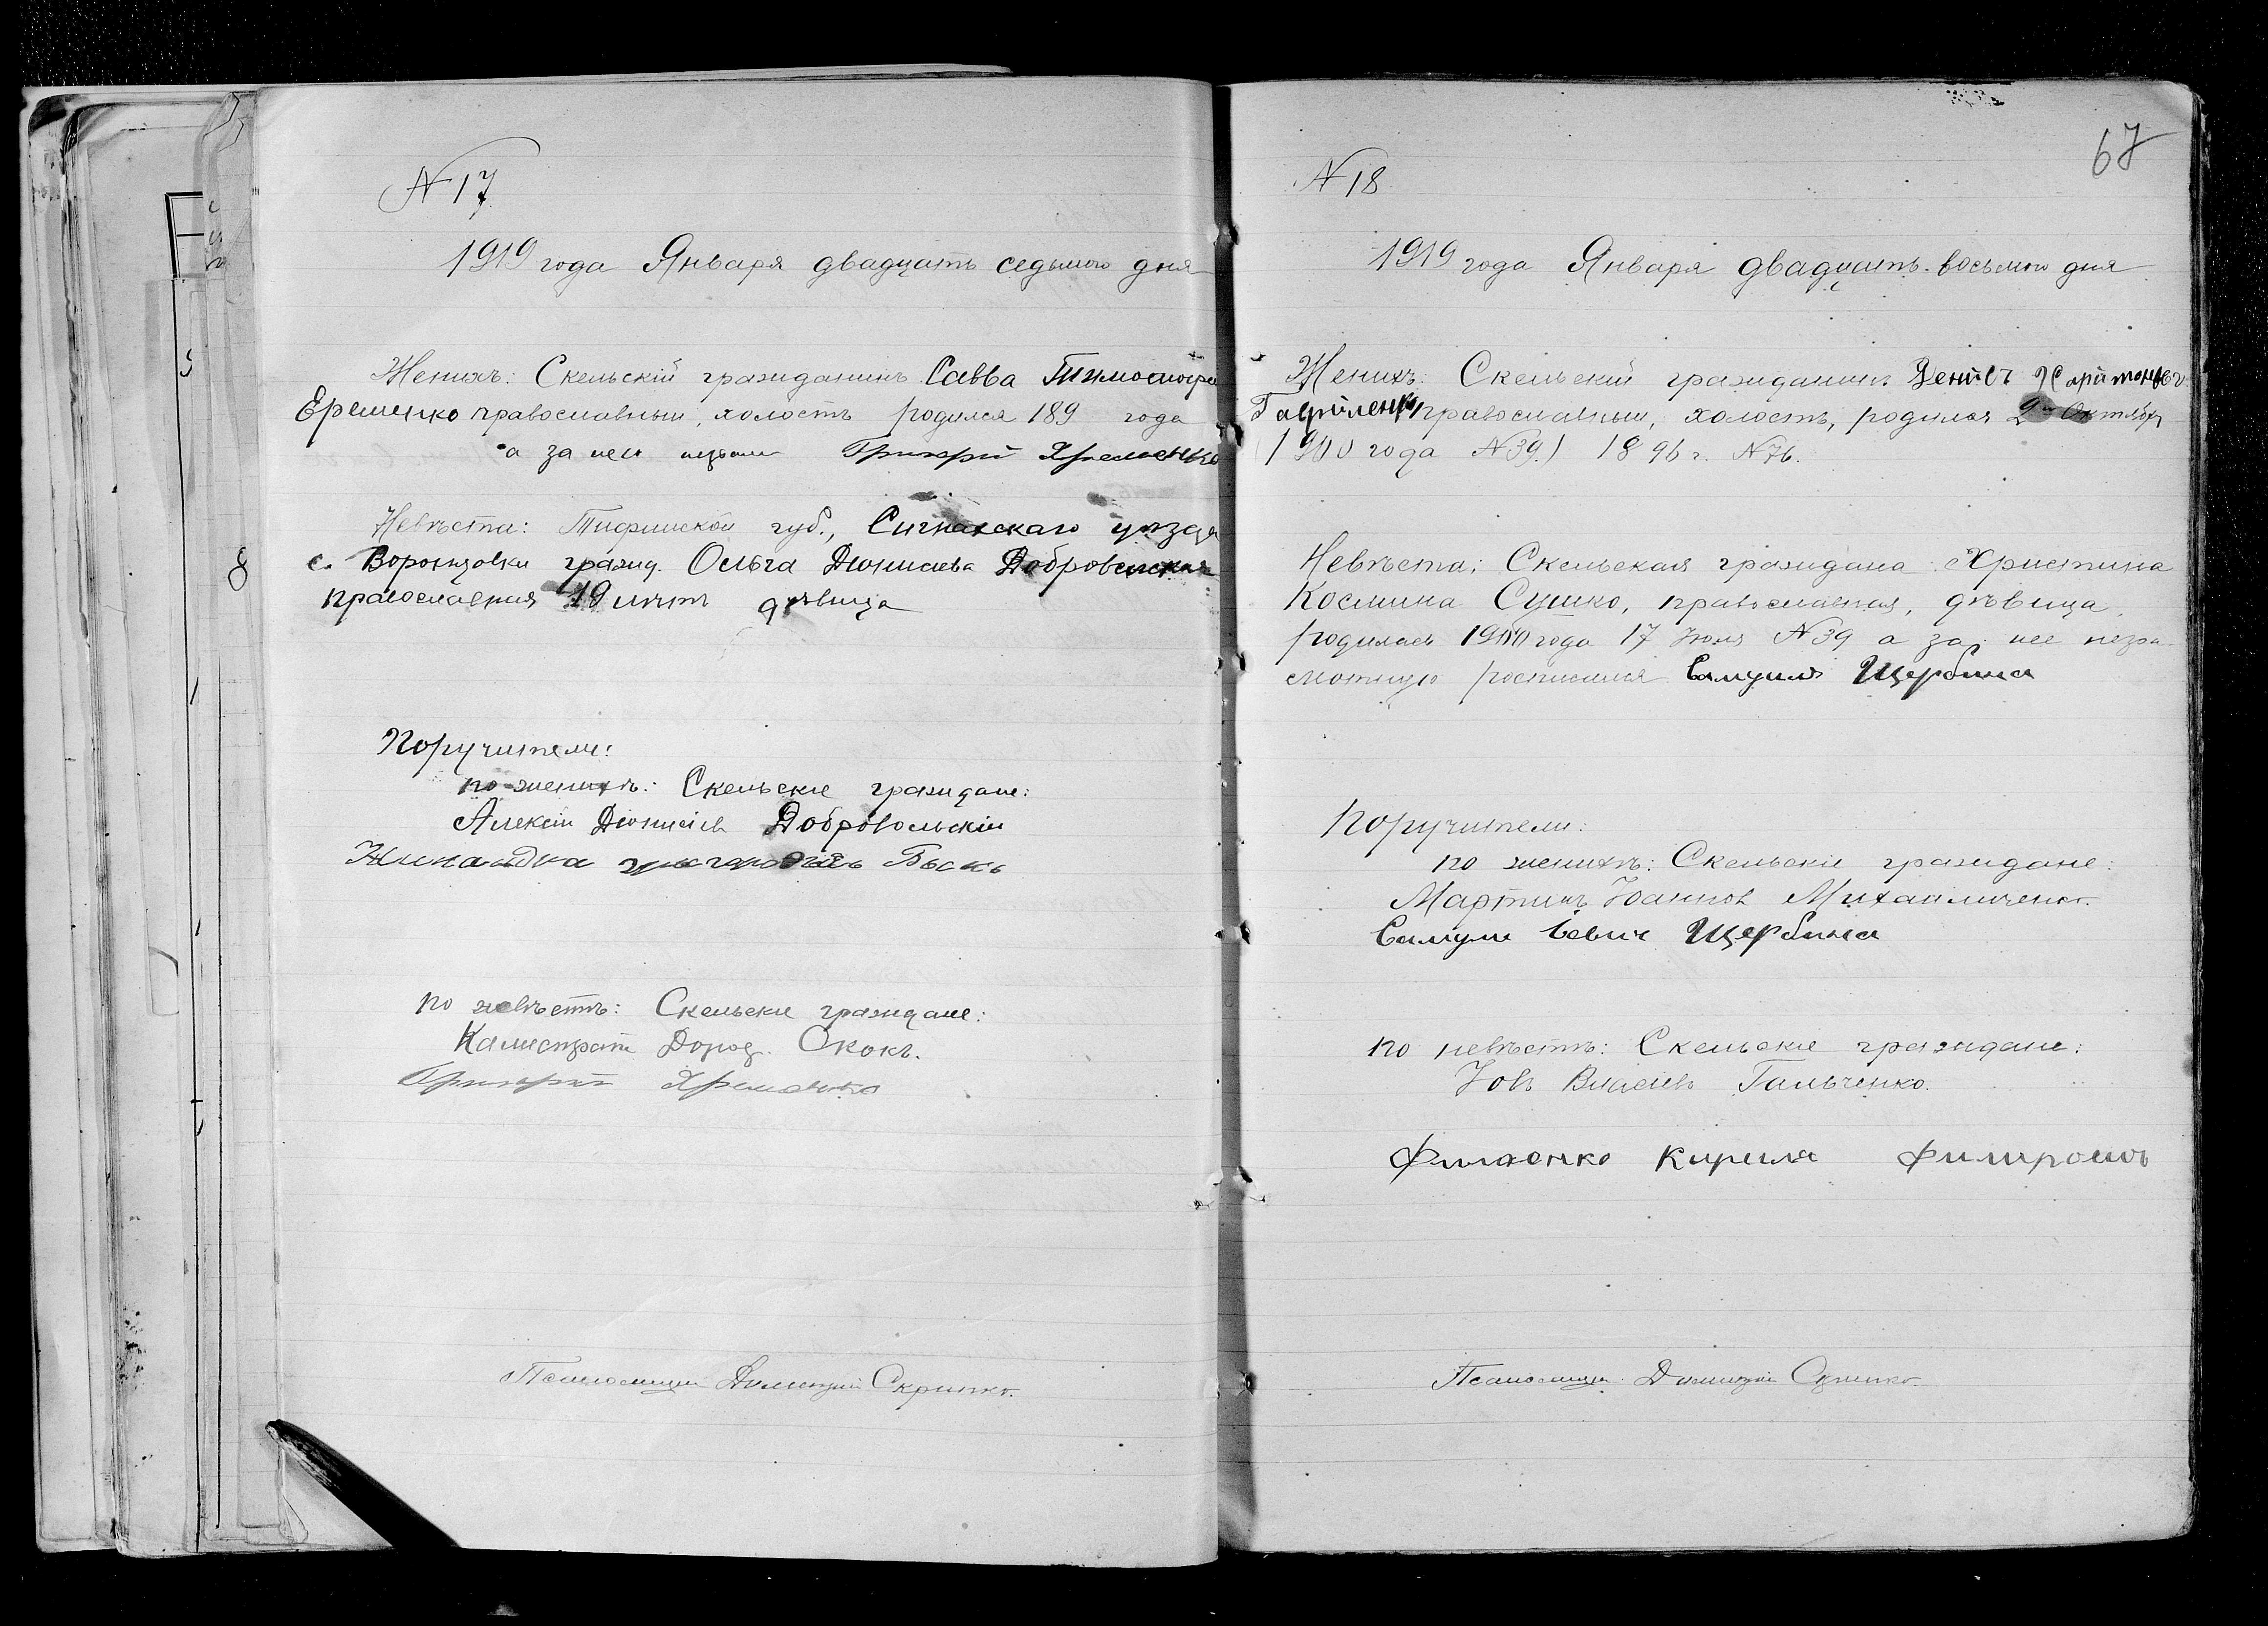 N 17
1919 года Января двадцать седьмого дня
Женихъ: Скельскій гражданинъ Савва Тимоѳеевъ
Еременко православный, холостъ родился 189 года
а за него
Невѣста: Тифлиской губ., Сигнахскаго уѣзда
с. Воронцовки гражд. Ольга Діонисіева Добровольская
православная 19 лѣтъ дѣвица
Поручители:
по женихѣ: Скельскіе граждане:
Алексій Діонисіев Добровольскій
по невѣстѣ: Скельскіе граждане:
Калистратъ Дороѳ. Скокъ.
Псаломщик Димитрій Скрипко.
67
N 18
1919 года Января двадцать восьмого дня
Женихъ: Скельскій гражданинъ Денисъ Харитоновъ
Гавриленко православный, холостъ, родился 2го Октября
(1900 года N 39.) 1896 г. N 76.
Невѣста: Скельская граждана Христина
Космина Сушко, православная, дѣвица,
родилась 1900 года 17 Июля N 39 а за нее негра-
мотную росписался Самуилъ Щербина
Поручители:
по женихѣ: Скельскіе граждане:
Мартинъ Іоаннов Михайличенко.
Самуил Щербина
по невѣстѣ: Скельскіе граждане:
Іовъ Власіевъ Гальченко.
Кирила
Псаломщикъ Димитрій
8